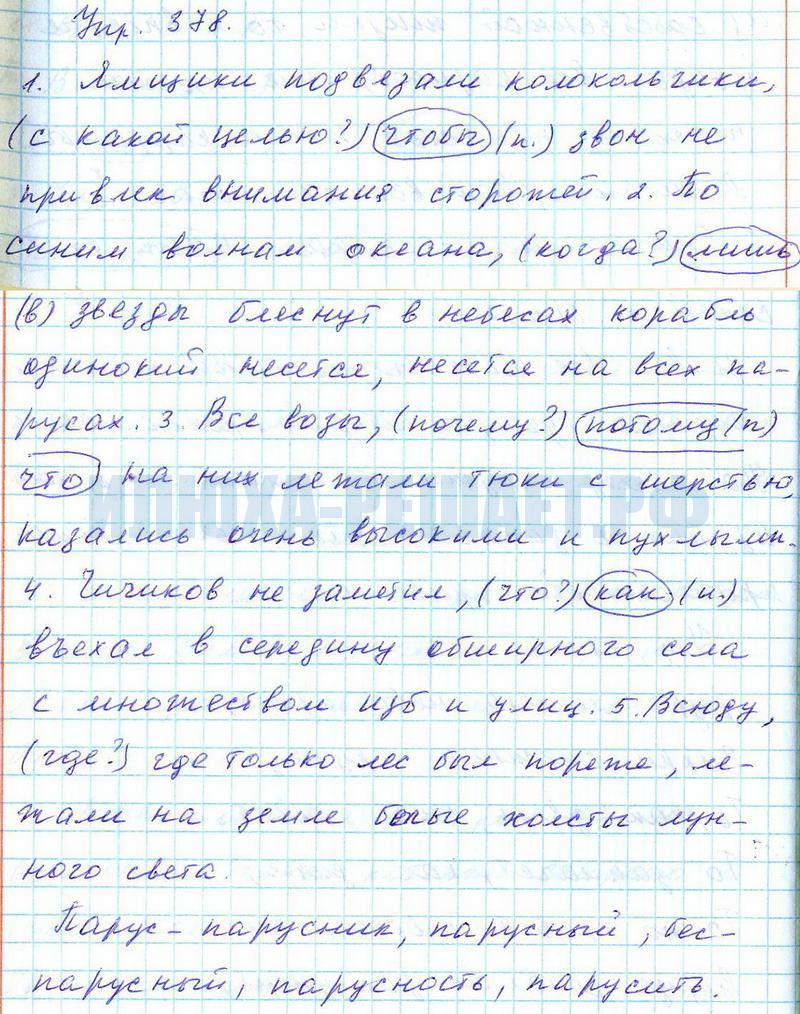 Упр. 378.
1. Ямщики подвязали колокольчики,
(с какой целью?) чтобы (п.) звон не
привлек внимания сторожей. 2. По
синим волнам океана, (когда?) лишь
(в) звезды блеснут в небесах корабль
одинокий несется, несется на всех па-
русах. 3. Все возы, (почему?) потому (п)
что на них лежали тюки с шерстью,
казались очень высокими и пухлыми.
4. Чичиков не заметил, (что?) как (и.)
въехал в середину обширного села
с множеством изб и улиц. 5. Всюду,
(где?) где только лес был пореже, ле-
жали на земле белые холсты лун-
ного света.
Парус - парусник, парусный, бес-
парусный, парусность, парусить.
ИЛЮХА-РЕШАЕТ.РФ